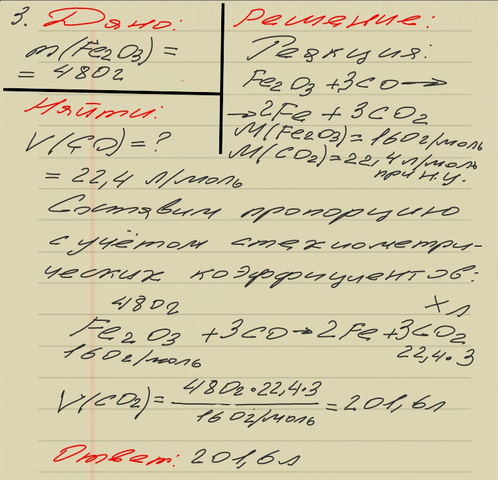 3. Дано:
m(Fe2O3) =
= 480г
Найти:
V(CO) = ?
Решение:
Реакция:
Fe2O3 + 3CO →
→ 2Fe + 3CO2
M(Fe2O3) = 160г/моль
M(CO2) = 22,4 л/моль
при н.у.
= 22,4 л/моль
Составим пропорцию
с учётом стехиометри-
ческих коэффициентов:
480г X л
Fe2O3 + 3CO → 2Fe + 3CO2
160г/моль 22,4·3
V(CO2) = 480г·22,4·3 / 160г/моль = 201,6л
Ответ: 201,6л